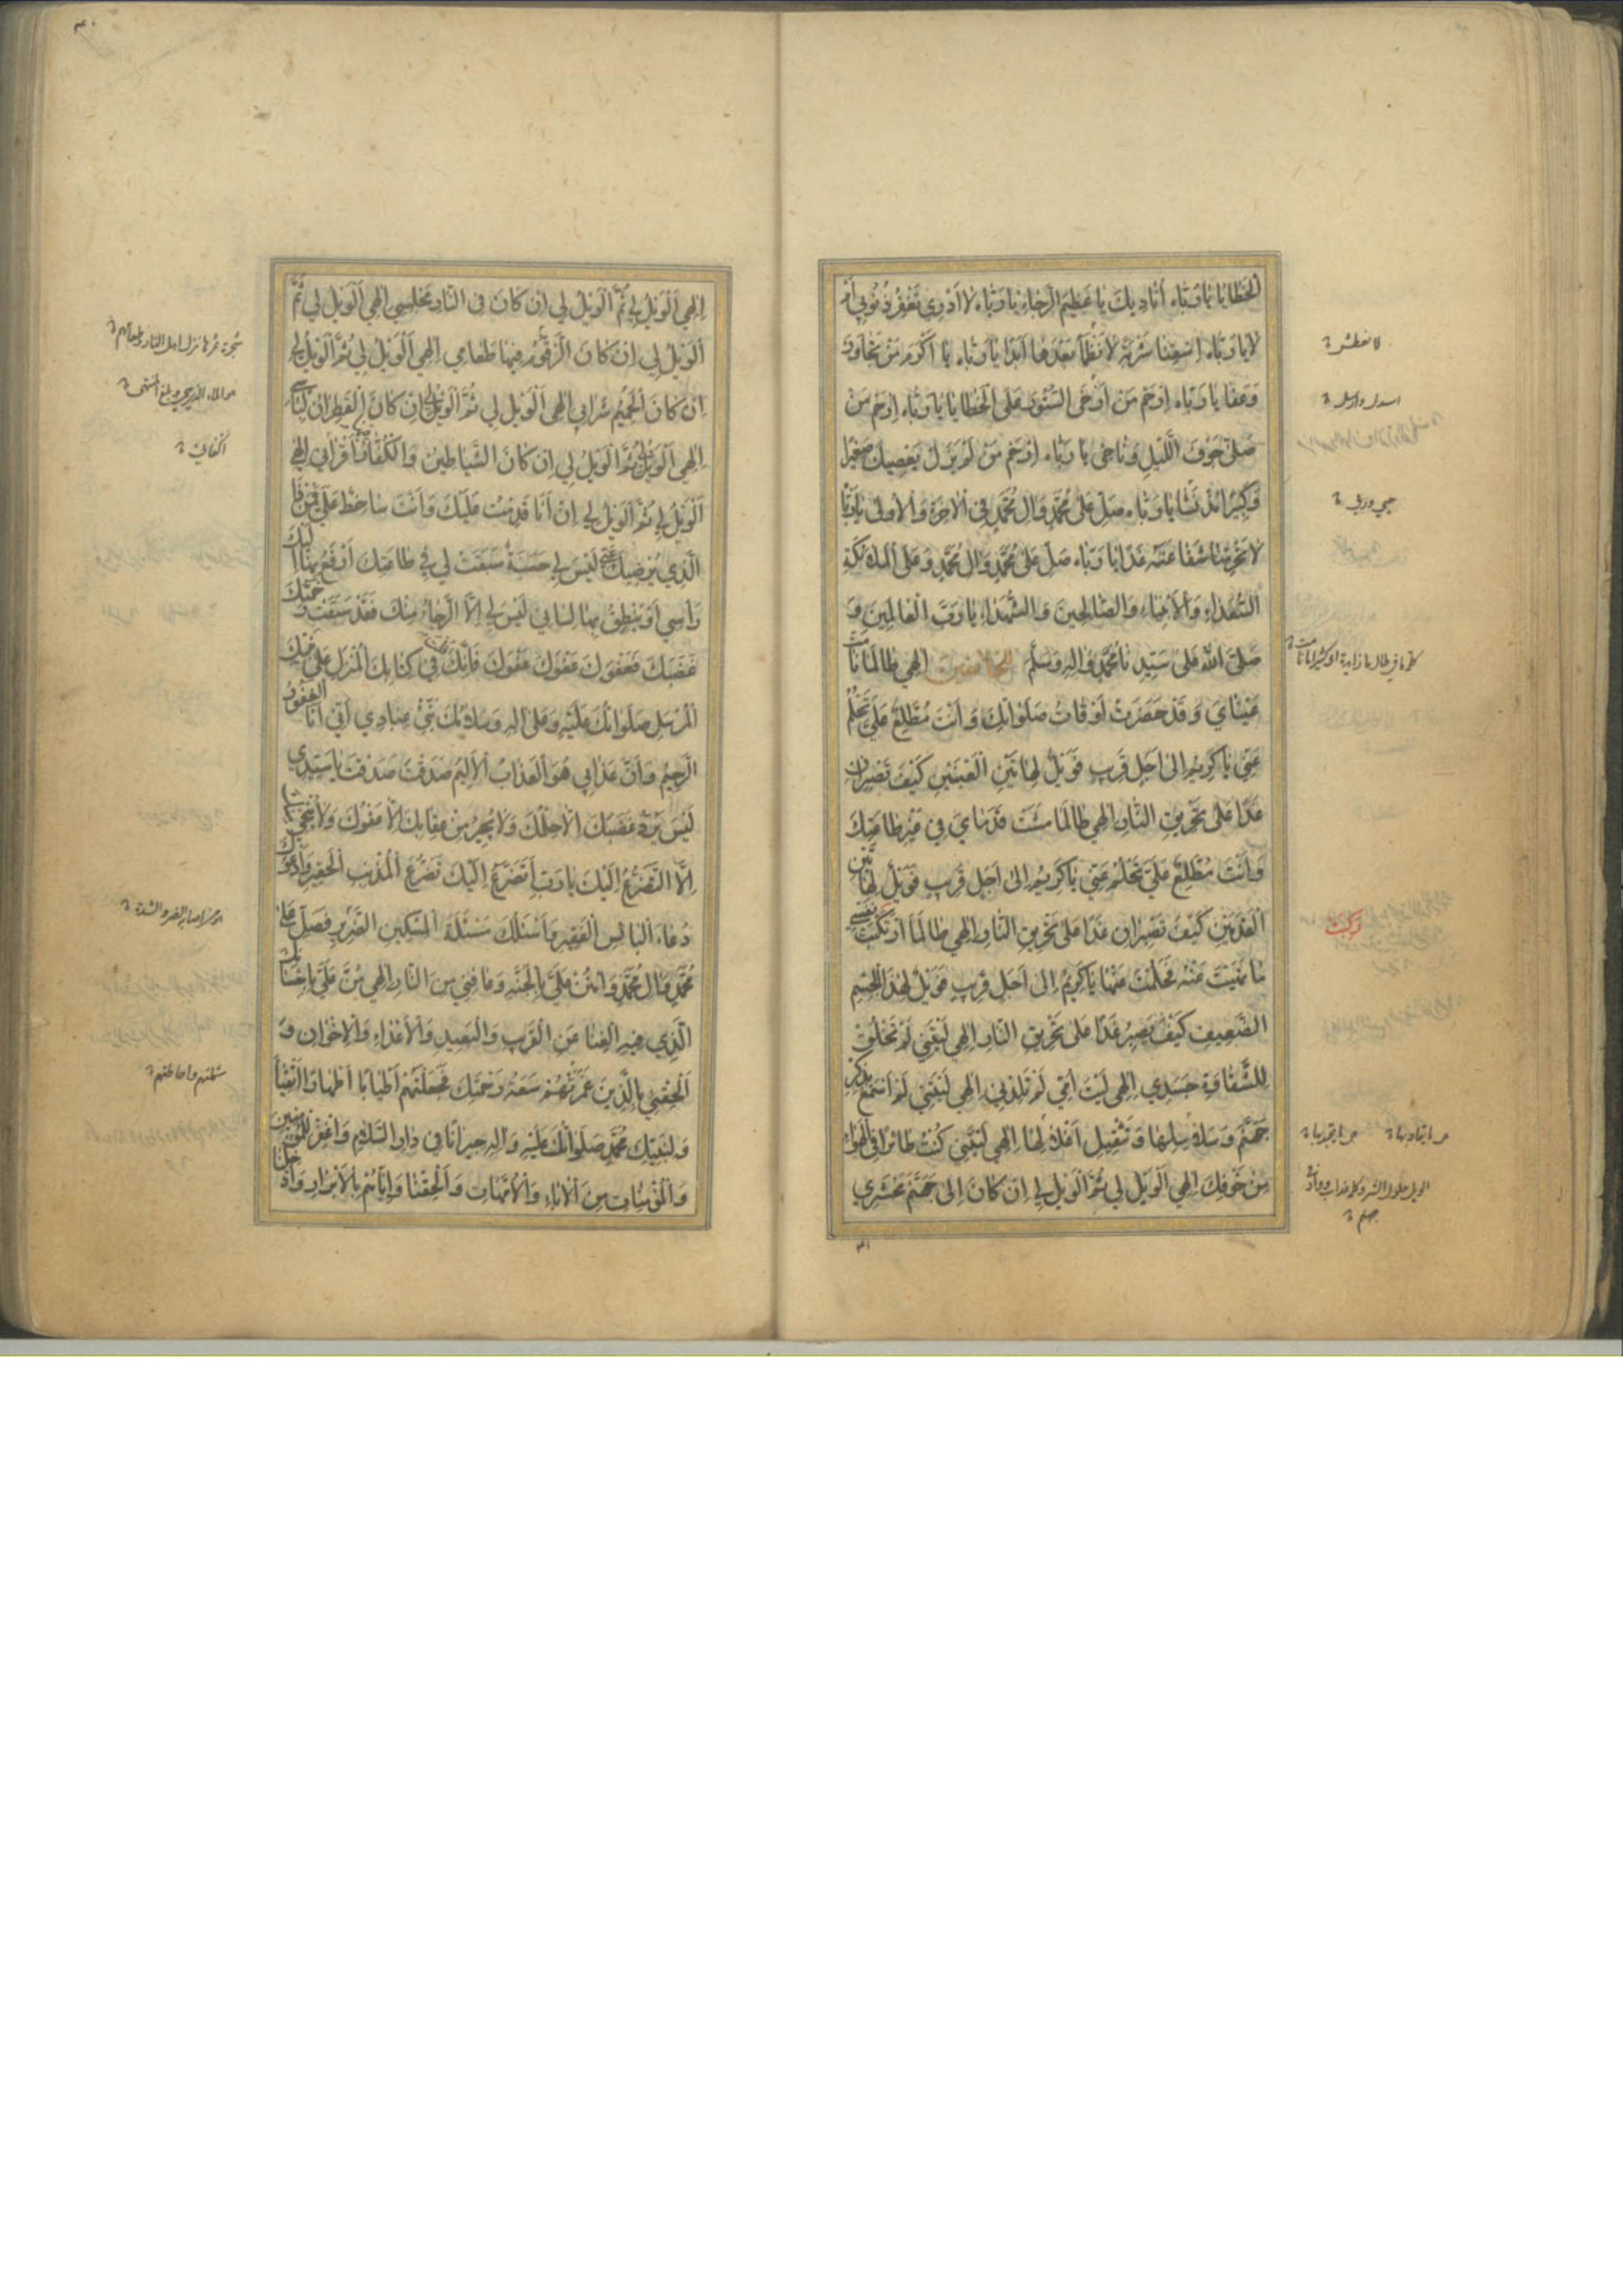 الخَطَايَا يَا رَبَّاه أُنَادِيكَ يَا عَظِيمَ الرَّجَاءِ يَا رَبَّاه لَا أَدْرِي تَغْفِرُ ذُنُوبِي أَمْ
لَا يَا رَبَّاه اِسْقِنَا شَرْبَةً لَا نَظْمَأُ بَعْدَهَا أَبَدًا يَا رَبَّاه يَا أَكْرَمَ مَنْ تَجَاوَزَ
وَعَفَا يَا رَبَّاه اِرْحَمْ مَنْ أَرْخَى السُّتُورَ عَلَى الْخَطَايَا يَا رَبَّاه اِرْحَمْ مَنْ
صَلَّى جَوْفَ اللَّيْلِ وَنَاجَى يَا رَبَّاه اِرْحَمْ مَنْ لَمْ يَزَلْ يَعْصِيكَ صَغِيرًا
وَكَبِيرًا مُذْ نَشَا يَا رَبَّاه صَلِّ عَلَى مُحَمَّدٍ وَآلِ مُحَمَّدٍ فِي الْآخِرَةِ وَالْأُولَى يَا رَبَّاه
لَا تَحْرِمْنَا شَفَاعَتَهُ غَدًا يَا رَبَّاه صَلِّ عَلَى مُحَمَّدٍ وَآلِ مُحَمَّدٍ وَعَلَى الْمَلَائِكَةِ
السُّعَدَاءِ وَالْأَحِبَّاءِ وَالصَّالِحِينَ وَالشُّهَدَاءِ يَا رَبَّ الْعَالَمِينَ وَ
صَلَّى اللهُ عَلَى سَيِّدِنَا مُحَمَّدٍ وَآلِهِ وَسَلَّمَ إِلَهِي طَالَمَا نَامَتْ
عَيْنَايَ وَقَدْ حَضَرَتْ أَوْقَاتُ صَلَوَاتِكَ وَأَنْتَ مُطَّلِعٌ عَلَيَّ تَحْلُمُ
عَنِّي يَا كَرِيمُ إِلَى أَجَلٍ قَرِيبٍ فَوَيْلٌ لِهَاتَيْنِ الْعَيْنَيْنِ كَيْفَ تَصْبِرَانِ
غَدًا عَلَى تَحْرِيقِ النَّارِ إِلَهِي طَالَمَا مَشَتْ قَدَمَايَ فِي غَيْرِ طَاعَتِكَ
وَأَنْتَ مُطَّلِعٌ عَلَيَّ تَحْلُمُ عَنِّي يَا كَرِيمُ إِلَى أَجَلٍ قَرِيبٍ فَوَيْلٌ لِهَاتَيْنِ
الْقَدَمَيْنِ كَيْفَ تَصْبِرَانِ غَدًا عَلَى تَحْرِيقِ النَّارِ إِلَهِي طَالَمَا ارْتَكَبَتْ نَفْسِي
مَا نَهَيْتَ عَنْهُ فَحَلُمْتَ عَنْهَا يَا كَرِيمُ إِلَى أَجَلٍ قَرِيبٍ فَوَيْلٌ لِهَذَا الْجِسْمِ
الضَّعِيفِ كَيْفَ يَصْبِرُ غَدًا عَلَى تَحْرِيقِ النَّارِ إِلَهِي لَيْتَنِي لَمْ تَخْلُقْ
لِلشَّقَاوَةِ جَسَدِي إِلَهِي لَيْتَ أُمِّي لَمْ تَلِدْنِي إِلَهِي لَيْتَنِي لَمْ أَسْمَعْ بِذِكْرِ
جَهَنَّمَ وَسَلَاسِلِهَا وَتَثْقِيلِ أَغْلَالِهَا إِلَهِي لَيْتَنِي كُنْتُ طَائِرًا فِي الْهَوَاءِ
مِنْ خَوْفِكَ إِلَهِي الْوَيْلُ لِي ثُمَّ الْوَيْلُ لِي إِنْ كَانَ إِلَى جَهَنَّمَ مَحْشَرِي
لا نعطش
اسدل وارسل
ركبت
جهنم
٣١
إِلَهِي الْوَيْلُ لِي ثُمَّ الْوَيْلُ لِي إِنْ كَانَ فِي النَّارِ مَجْلِسِي إِلَهِي الْوَيْلُ لِي ثُمَّ
الْوَيْلُ لِي إِنْ كَانَ الزَّقُّومُ فِيهَا طَعَامِي إِلَهِي الْوَيْلُ لِي ثُمَّ الْوَيْلُ لِي
إِنْ كَانَ الْحَمِيمُ شَرَابِي إِلَهِي الْوَيْلُ لِي ثُمَّ الْوَيْلُ لِي إِنْ كَانَ الْقَطِرَانُ لِبَاسِي
إِلَهِي الْوَيْلُ لِي ثُمَّ الْوَيْلُ لِي إِنْ كَانَ الشَّيَاطِينُ وَالْكُفَّارُ أَقْرَانِي إِلَهِي
الْوَيْلُ لِي ثُمَّ الْوَيْلُ لِي إِنْ أَنَا قَدِمْتُ عَلَيْكَ وَأَنْتَ سَاخِطٌ عَلَيَّ فَمَنْ ذَا
الَّذِي يُرْضِيكَ عَنِّي لَيْسَ لِي حَسَنَةٌ سَبَقَتْ لِي فِي طَاعَتِكَ أَرْفَعُ بِهَا إِلَيْكَ
رَأْسِي أَوْ يَنْطِقُ بِهَا لِسَانِي لَيْسَ لِي إِلَّا الرَّجَاءُ مِنْكَ فَقَدْ سَبَقَتْ رَحْمَتُكَ
غَضَبَكَ فَعَفْوَكَ عَفْوَكَ عَفْوَكَ فَإِنَّكَ قُلْتَ فِي كِتَابِكَ الْمُنْزَلِ عَلَى نَبِيِّكَ
الْمُرْسَلِ صَلَوَاتُكَ عَلَيْهِ وَعَلَى آلِهِ وَسَلَامُكَ نَبِّئْ عِبَادِي أَنِّي أَنَا الْغَفُورُ
الرَّحِيمُ وَأَنَّ عَذَابِي هُوَ الْعَذَابُ الْأَلِيمُ صَدَقْتَ صَدَقْتَ يَا سَيِّدِي
لَيْسَ يَرُدُّ غَضَبَكَ إِلَّا حِلْمُكَ وَلَا يُجِيرُ مِنْ عِقَابِكَ إِلَّا عَفْوُكَ وَلَا يُنْجِي مِنْكَ
إِلَّا التَّضَرُّعُ إِلَيْكَ يَا رَبِّ أَتَضَرَّعُ إِلَيْكَ تَضَرُّعَ الْمُذْنِبِ الْحَقِيرِ وَأَدْعُوكَ
دُعَاءَ الْبَائِسِ الْفَقِيرِ وَأَسْئَلُكَ مَسْئَلَةَ الْمِسْكِينِ الضَّرِيرِ فَصَلِّ عَلَى
مُحَمَّدٍ وَآلِ مُحَمَّدٍ وَامْنُنْ عَلَيَّ بِالْجَنَّةِ وَعَافِنِي مِنَ النَّارِ إِلَهِي مُنَّ عَلَيَّ بِإِحْسَانِكَ
الَّذِي فِيهِ الْغِنَا عَنِ الْقَرِيبِ وَالْبَعِيدِ وَالْأَعْدَاءِ وَالْإِخْوَانِ وَ
أَلْحِقْنِي بِالَّذِينَ غَمَرَتْهُمْ سَعَةُ رَحْمَتِكَ فَجَعَلْتَهُمْ أَطْيَابًا أَطْهَارًا أَتْقِيَاءَ
وَلِنَبِيِّكَ مُحَمَّدٍ صَلَوَاتُكَ عَلَيْهِ وَآلِهِ جِيرَانًا فِي دَارِ السَّلَامِ وَاغْفِرْ لِلْمُؤْمِنِينَ
وَالْمُؤْمِنَاتِ مِنَ الْآبَاءِ وَالْأُمَّهَاتِ وَأَلْحِقْنَا وَإِيَّاهُمْ بِالْأَبْرَارِ وَأَدْخِلْنَا
شملتهم واحاطتهم